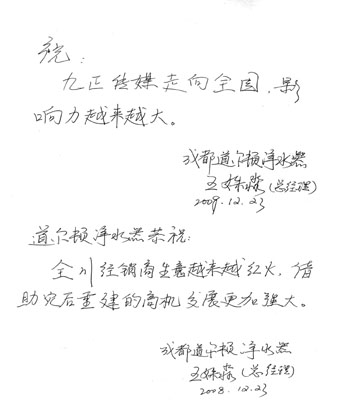 祝:
九正传媒走向全国,影
响力越来越大。
成都道尔顿净水器
王姝(总经理)
2009.12.23
道尔顿净水器恭祝:
全川经销商生意越来越红火,借
助灾后重建的商机发展更加强大。
成都道尔顿净水器
王姝(总经理)
2008.12.23